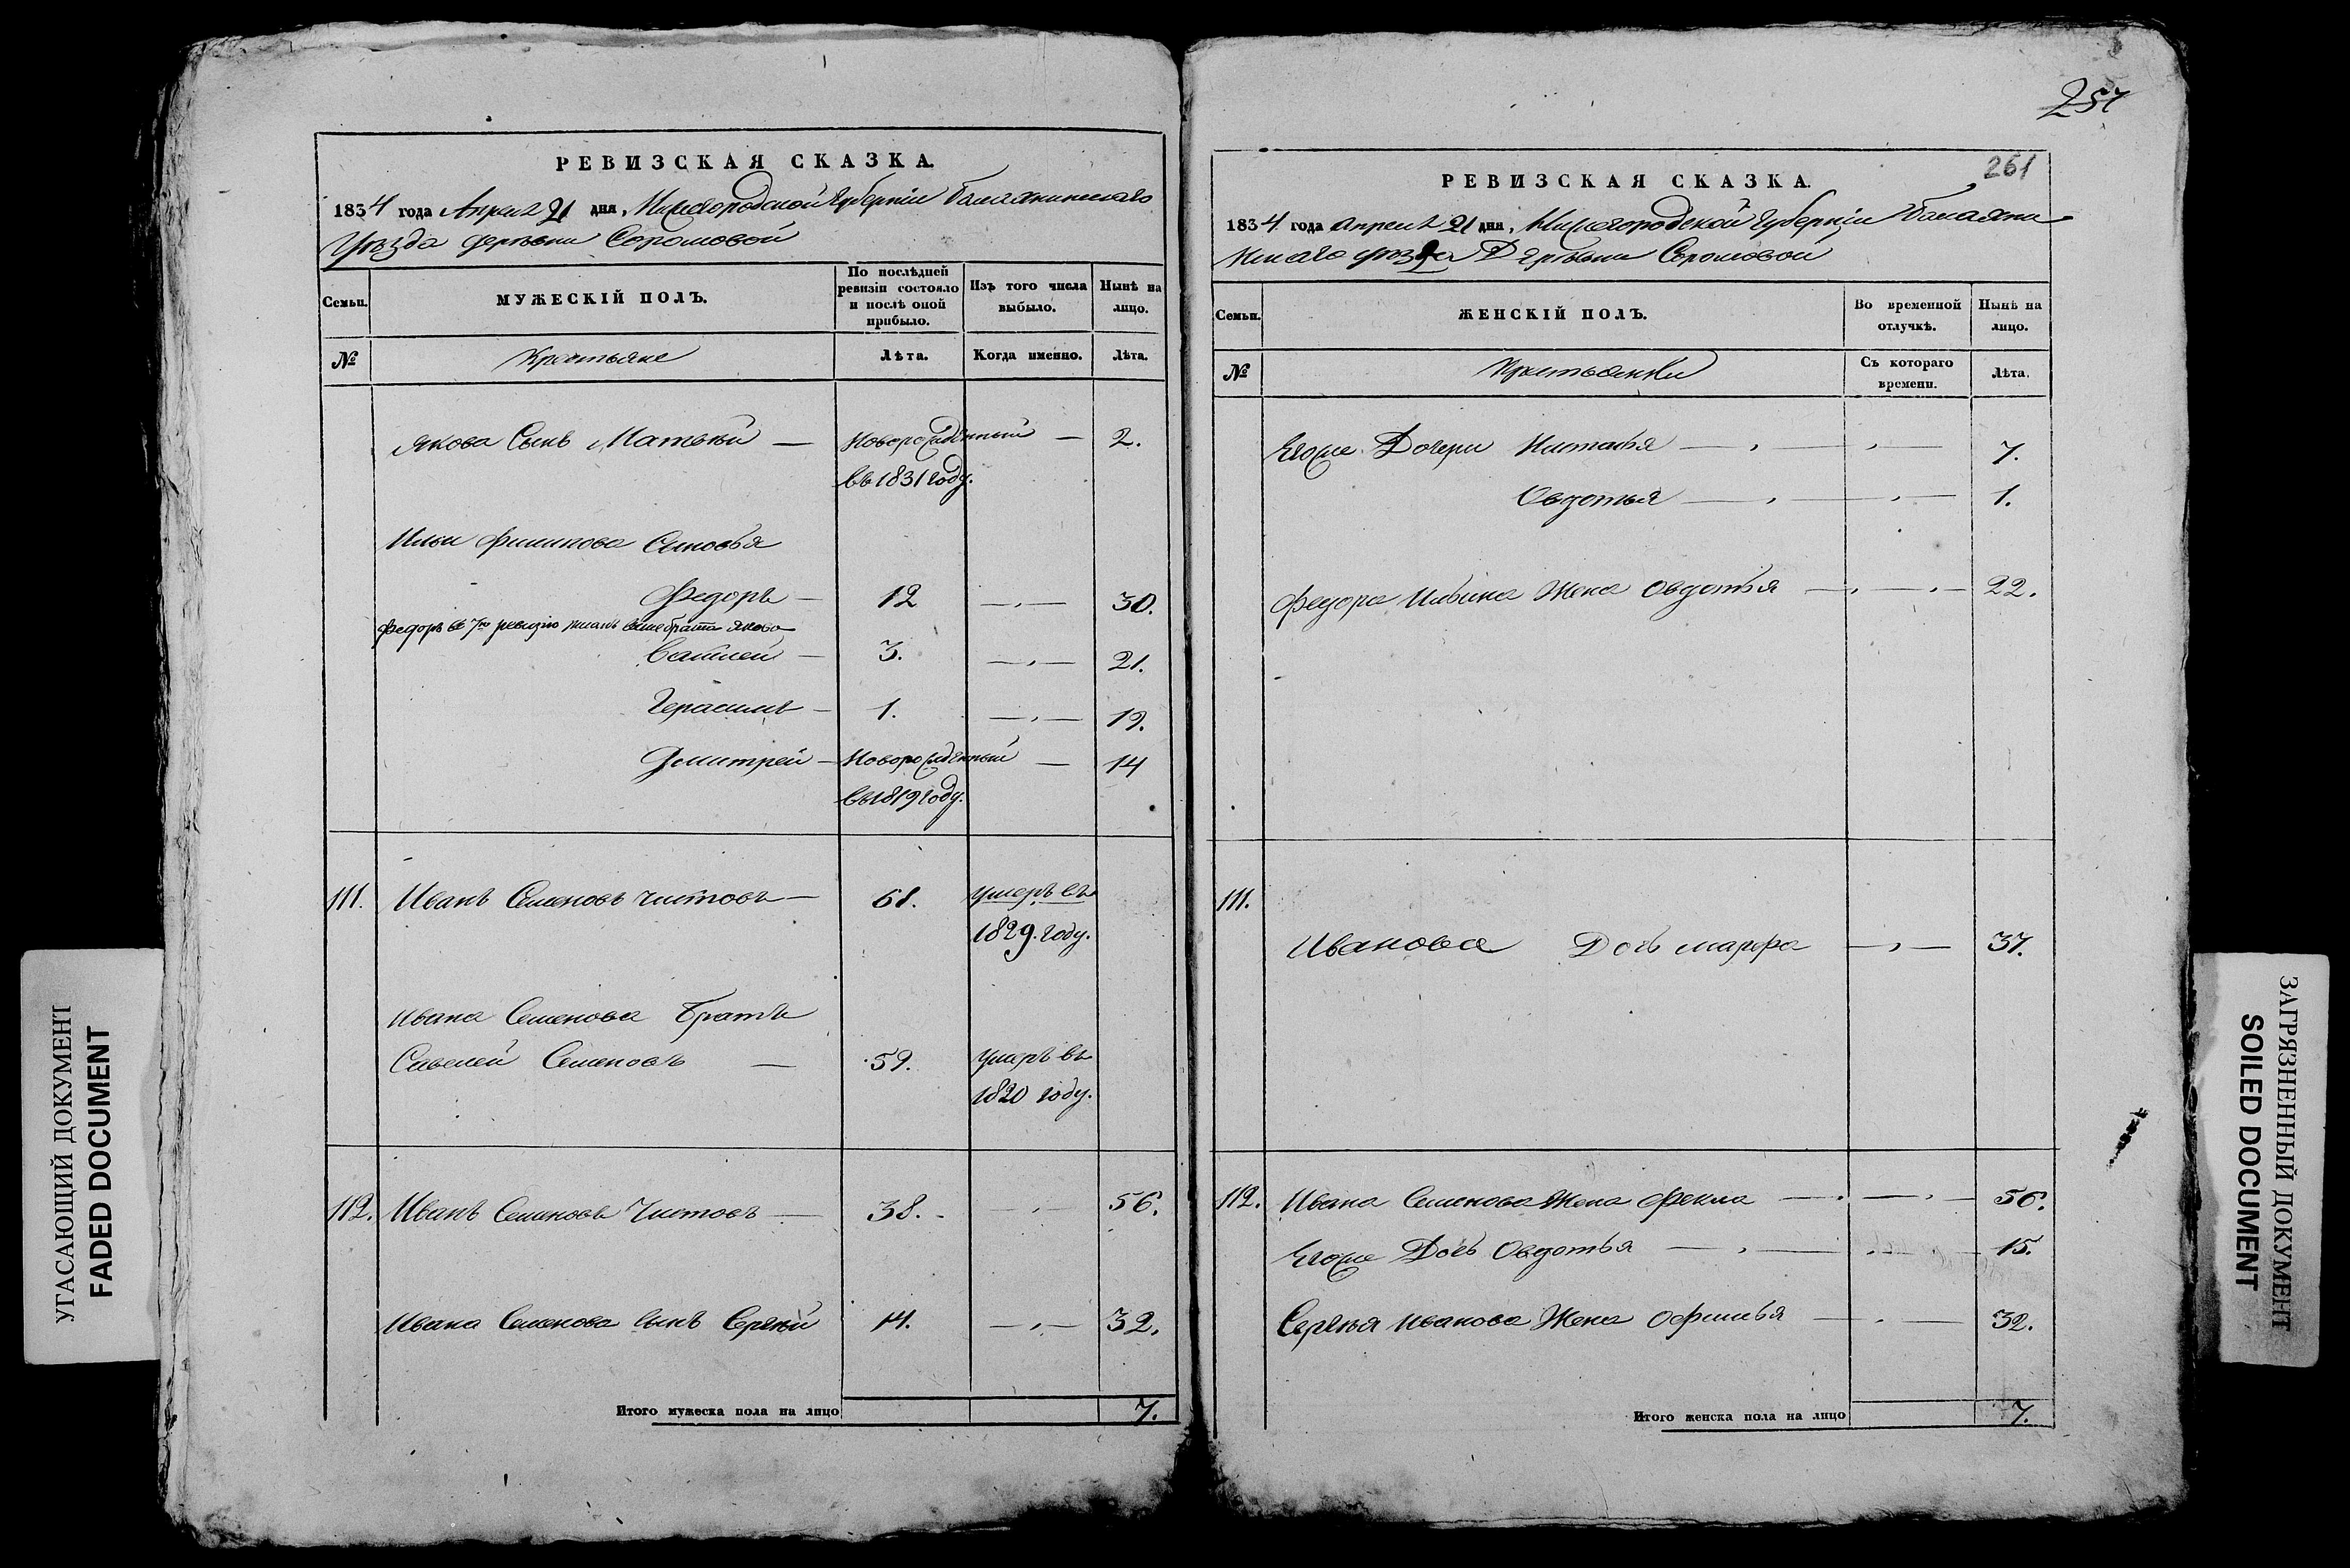 РЕВИЗСКАЯ СКАЗКА.
1834 года Апреля 21 дня, Нижегородской Губернiи Балахнинскаго
Уѣзда деревни Сормовой
Семьи.
МУЖЕСКІЙ ПОЛЪ.
По послѣдней ревизіи состояло и послѣ оной прибыло.
Изъ того числа выбыло.
Нынѣ на лицо.
№
Крестьяне
Лѣта.
Когда именно.
Лѣта.
Якова Сынъ Матвѣй — Новорожденный — 2.
въ 1831 году.
Ильи Филипова Сыновья
Федоръ — 12 — 30.
Федоръ въ 7ю ревизію писанъ выше брата Якова
Василей — 3. — 21.
Герасимъ — 1. — 19.
Дмитрей — Новорожденный — 14
въ 1819 году.
111. Иванъ Семеновъ Чистовъ — 61. Умеръ въ
1829. году.
Ивана Семенова Братъ
Савелей Семеновъ — 59. Умеръ въ
1820 году.
112. Иванъ Семеновъ Чистовъ — 38. — 56.
Ивана Семенова сынъ Сергѣй 14. — 32.
Итого мужеска пола на лицо 7.
257
261
РЕВИЗСКАЯ СКАЗКА.
1834 года апреля 21 дня, Нижегородской Губернiи Балахни
нскаго уѣзда Деревни Сормовой
Семьи.
ЖЕНСКІЙ ПОЛЪ.
Во временной отлучкѣ.
Нынѣ на лицо.
№
Крестьянки
Съ котораго времени.
Лѣта.
Егоже Дочери Наталья — 7.
Овдотья — 1.
Федора Ильина Жена Овдотья — 22.
111.
Иванова Дочь марфа — 37.
112. Ивана Семенова Жена Фекла — 56.
Егоже Дочь Овдотья — 15.
Сергѣя Иванова Жена Офимья — 32.
Итого женска пола на лицо 7.
УГАСАЮЩИЙ ДОКУМЕНТ
FADED DOCUMENT
ЗАГРЯЗНЕННЫЙ ДОКУМЕНТ
SOILED DOCUMENT